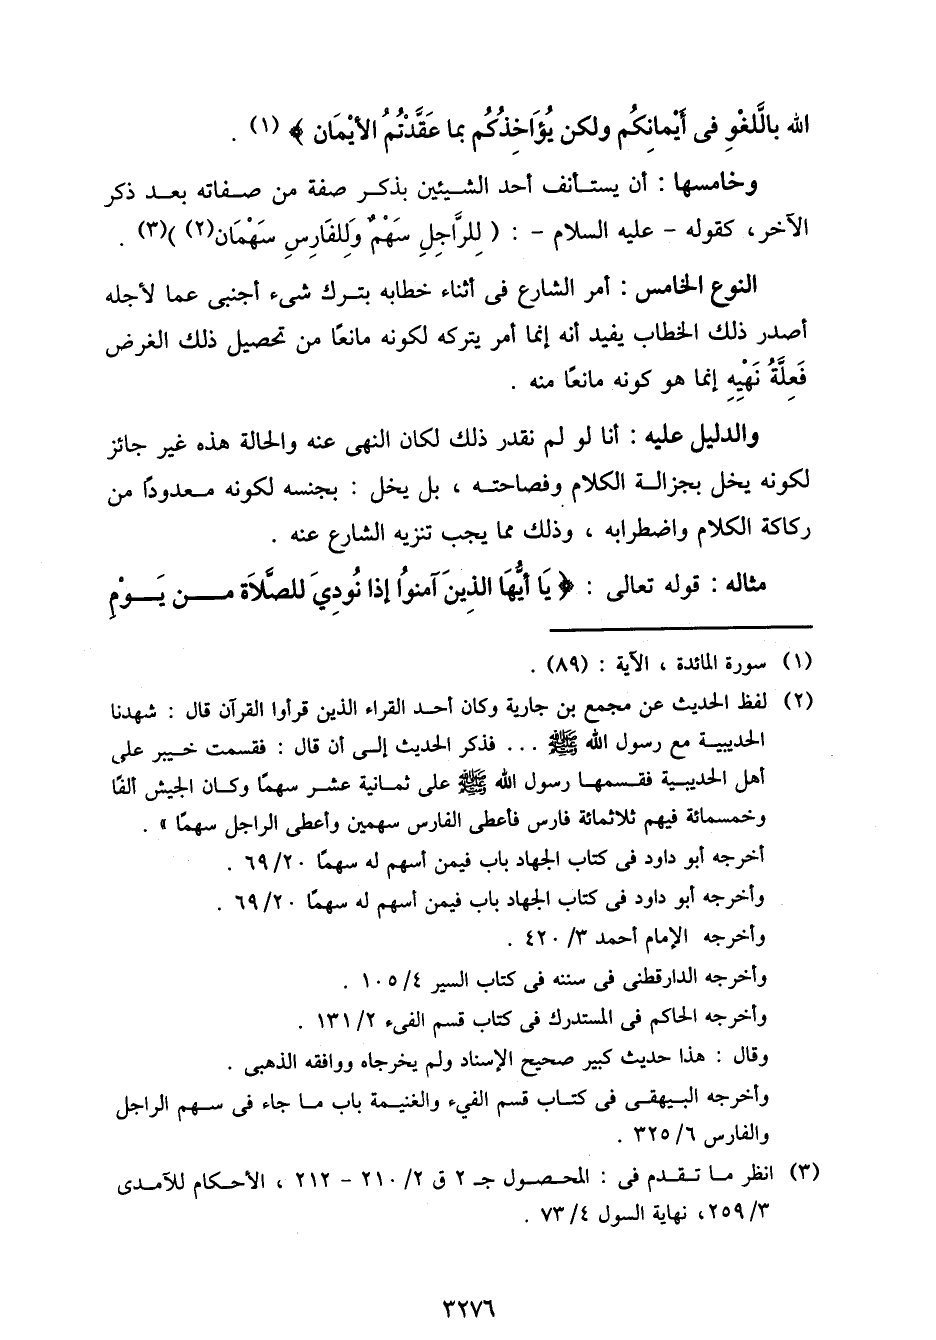 الله باللَّغْوِ فى أَيْمانِكُم ولكن يُؤَاخِذُكُم بما عَقَّدْتُمُ الأيْمَان ﴾ (١) .
وخامسها : أن يستأنف أحد الشيئين بذكر صفة من صفاته بعد ذكر
الآخر، كقوله - عليه السلام - : ( لِلرَّاجِلِ سَهْمٌ وَلِلفَارِسِ سَهْمَان(٢) )(٣) .
النوع الخامس : أمر الشارع فى أثناء خطابه بترك شىء أجنبى عما لأجله
أصدر ذلك الخطاب يفيد أنه إنما أمر يتركه لكونه مانعًا من تحصيل ذلك الغرض
فَعِلَّةُ نَهْيِهِ إنما هو كونه مانعًا منه .
والدليل عليه : أنا لو لم نقدر ذلك لكان النهى عنه والحالة هذه غير جائز
لكونه يخل بجزالة الكلام وفصاحته ، بل يخل : بجنسه لكونه معدودًا من
ركاكة الكلام واضطرابه ، وذلك مما يجب تنزيه الشارع عنه .
مثاله : قوله تعالى : ﴿ يَا أيُّهَا الذِينَ آمنوُا إذا نُودِيَ للصَّلَاة مـن يَـوْمِ
(١) سورة المائدة ، الآية : (٨٩) .
(٢) لفظ الحديث عن مجمع بن جارية وكان أحد القراء الذين قرأوا القرآن قال : شهدنا
الحديبية مع رسول الله ﷺ ... فذكر الحديث إلى أن قال : فقسمت خيبر على
أهل الحديبية فقسمها رسول الله ﷺ على ثمانية عشر سهمًا وكان الجيش ألفًا
وخمسمائة فيهم ثلاثمائة فارس فأعطى الفارس سهمين وأعطى الراجل سهمًا » .
أخرجه أبو داود فى كتاب الجهاد باب فيمن أسهم له سهمًا ٦٩/٢٠ .
وأخرجه أبو داود فى كتاب الجهاد باب فيمن أسهم له سهمًا ٦٩/٢٠ .
وأخرجه الإمام أحمد ٤٢٠/٣ .
وأخرجه الدارقطنى فى سننه فى كتاب السير ١٠٥/٤ .
وأخرجه الحاكم فى المستدرك فى كتاب قسم الفىء ١٣١/٢ .
وقال : هذا حديث كبير صحيح الإسناد ولم يخرجاه ووافقه الذهبى .
وأخرجه البيهقى فى كتاب قسم الفيء والغنيمة باب ما جاء فى سهم الراجل
والفارس ٣٢٥/٦ .
(٣) انظر ما تقدم فى : المحصول جـ ٢ ق ٢١٠/٢ - ٢١٢ ، الأحكام للآمدى
٢٥٩/٣، نهاية السول ٧٣/٤ .
٣٢٧٦